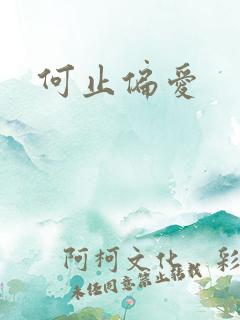 何止偏爱
阿柯文化 彩
未经同意禁止转载